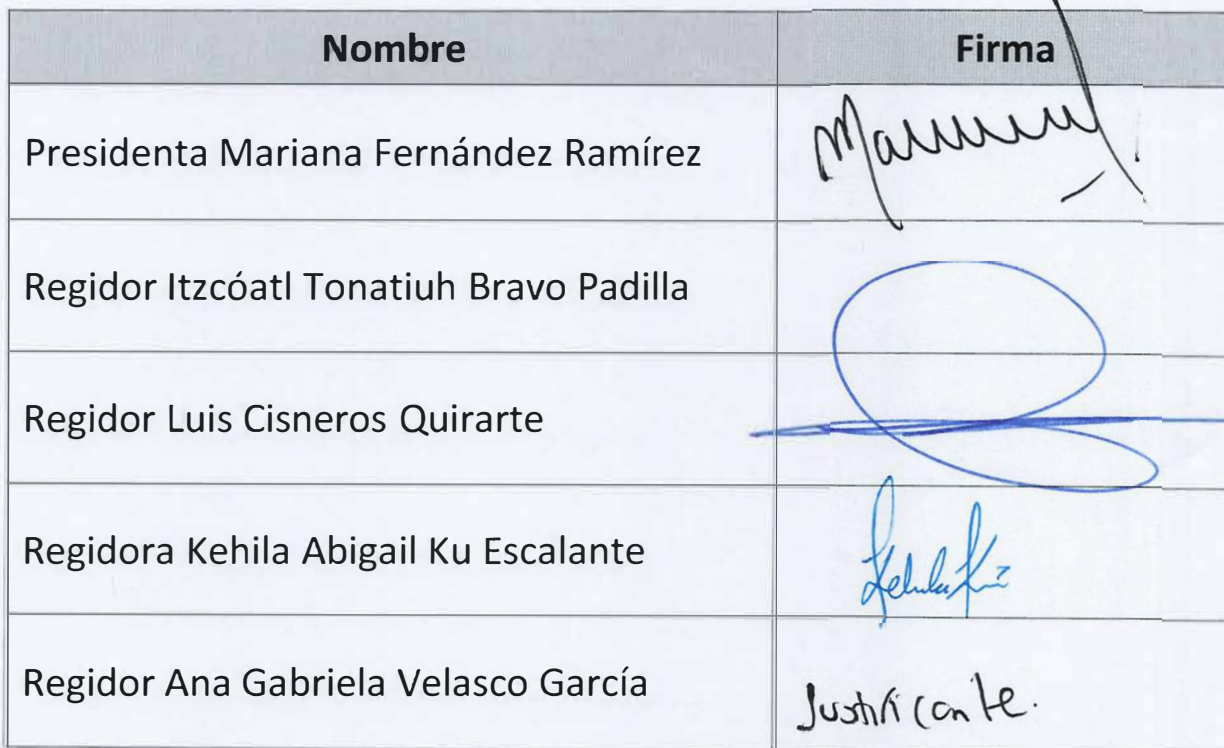 Nombre Firma
Presidenta Mariana Fernández Ramírez
Regidor Itzcóatl Tonatiuh Bravo Padilla
Regidor Luis Cisneros Quirarte
Regidora Kehila Abigail Ku Escalante
Regidor Ana Gabriela Velasco García Justificante.